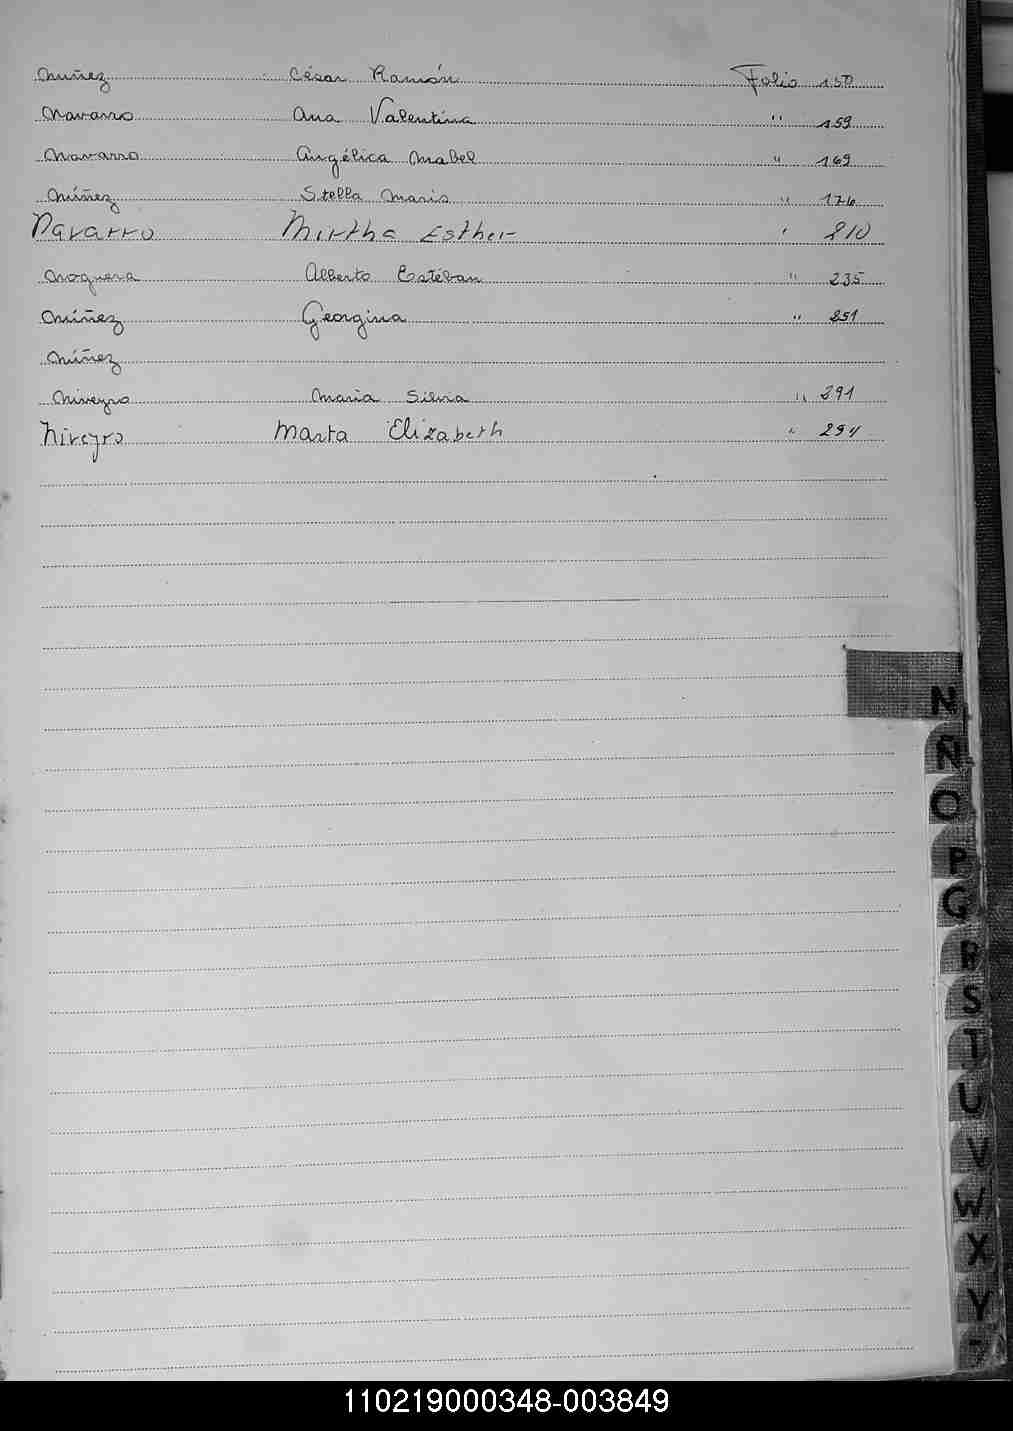 Nuñez César Ramón Folio 150
Navarro Ana Valentina " 159
Navarro Angélica Mabel " 169
Núñez Stella Maris " 176
Navarro Mirtha Esther " 210
Noguera Alberto Estéban " 235
Núñez Georgina " 251
Núñez
Niveyro Maria Silvia " 291
Niveyro Marta Elizabeth " 294
N
Ñ
O
P
Q
R
S
T
U
V
W
X
Y
110219000348-003849